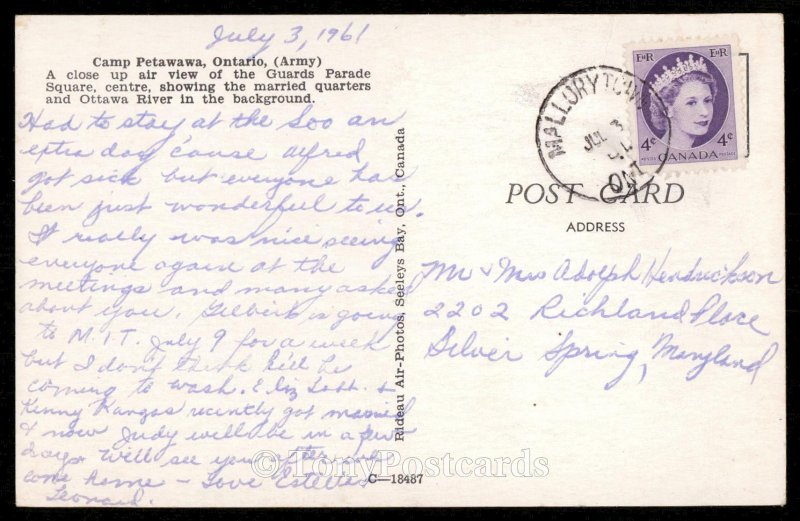 July 3, 1961
Camp Petawawa, Ontario, (Army)
A close up air view of the Guards Parade
Square, centre, showing the married quarters
and Ottawa River in the background.
Had to stay at the Soo an
extra day 'cause Alfred
got sick but everyone has
been just wonderful to us.
It really was nice seeing
everyone again at the
meetings and many asked
about you. Gilbert is going
to M.I.T. July 9 for a week
but I don't think he'll be
coming to Wash. E. Liz &
Kenny Kangas recently got married
& now Judy will be in a few
days. Will see you after we
come home - Love Esteller
Leonard.
Rideau Air-Photos, Seeleys Bay, Ont., Canada
C-18487
MALLORYTOWN
JUL 3
ONT
E II R E II R
4c 4c
POSTES CANADA POSTAGE
POST CARD
ADDRESS
Mr & Mrs Adolph Hendrickson
2202 Richland Place
Silver Spring, Maryland
©TonyPostcards